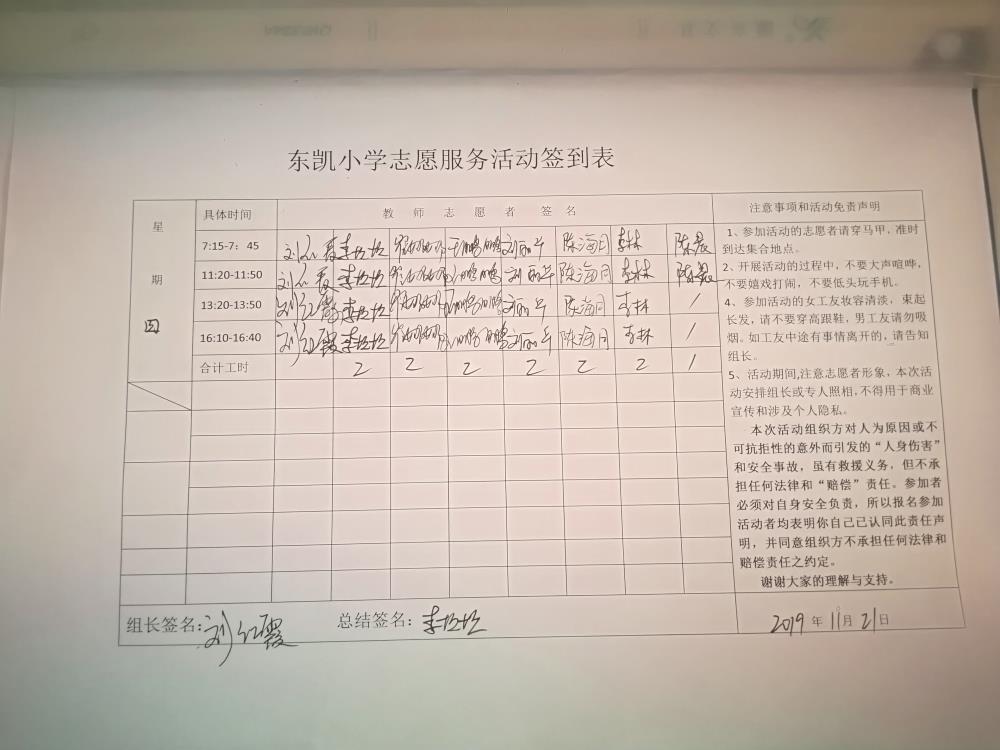 东凯小学志愿服务活动签到表
星期四
具体时间 教师志愿者签名 注意事项和活动免责声明
7:15-7：45 刘红霞 李垃垃 刘丽华 陈海月 李林 陈晨
11:20-11:50 刘红霞 李垃垃 刘丽华 陈海月 李林 陈晨
13:20-13:50 刘红霞 李垃垃 刘丽华 陈海月 李林 /
16:10-16:40 刘红霞 李垃垃 刘丽华 陈海月 李林 /
合计工时 2 2 2 2 2 2 1
1、参加活动的志愿者请穿马甲，准时
到达集合地点。
2、开展活动的过程中，不要大声喧哗，
不要嬉戏打闹，不要低头玩手机。
4、参加活动的女工友妆容清淡，束起
长发，请不要穿高跟鞋，男工友请勿吸
烟。如工友中途有事情离开的，请告知
组长。
5、活动期间,注意志愿者形象，本次活
动安排组长或专人照相，不得用于商业
宣传和涉及个人隐私。
本次活动组织方对人为原因或不
可抗拒性的意外而引发的“人身伤害”
和安全事故，虽有救援义务，但不承
担任何法律和“赔偿”责任。参加者
必须对自身安全负责，所以报名参加
活动者均表明你自己已认同此责任声
明，并同意组织方不承担任何法律和
赔偿责任之约定。
谢谢大家的理解与支持。
组长签名:刘红霞 总结签名:李垃垃 2019年11月21日